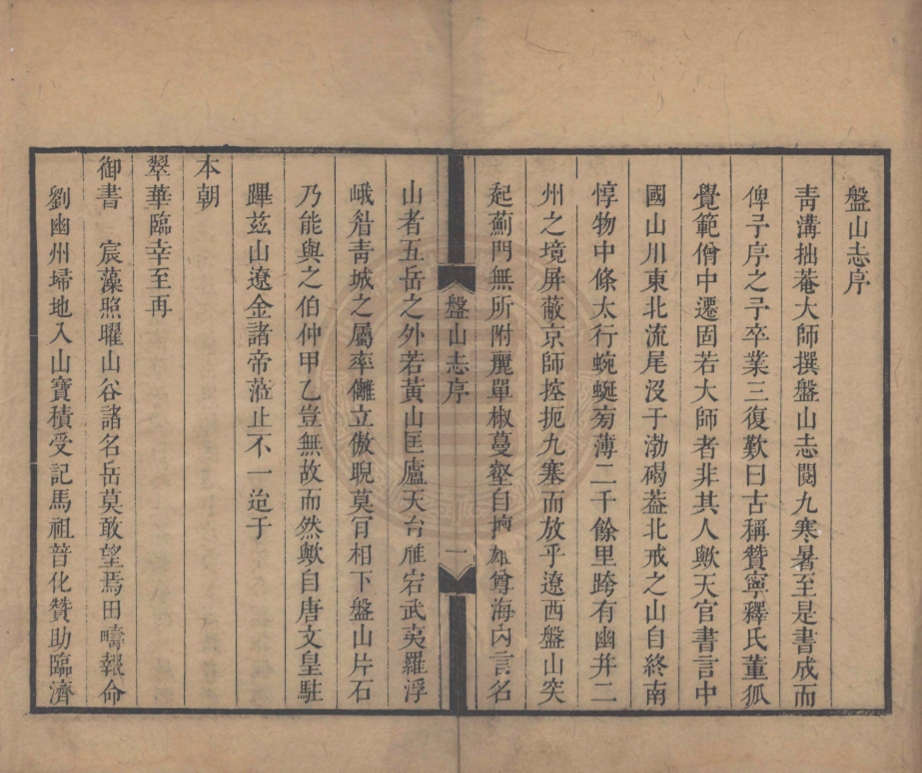 盤山志序
青溝拙菴大師撰盤山志閱九寒暑至是書成而
俾予序之予卒業三復歎曰古稱贊寧釋氏董狐
覺範僧中遷固若大師者非其人歟天官書言中
國山川東北流尾沒于渤碣葢北戒之山自終南
惇物中條太行蜿蜒旁薄二千餘里跨有幽幷二
州之境屏蔽京師控扼九塞而放乎遼西盤山突
起薊門無所附麗單椒蔓壑自擅雄尊海內言名
盤山志序
一
山者五岳之外若黃山匡廬天台雁宕武夷羅浮
峨眉靑城之屬率儺立傲睨莫肯相下盤山片石
乃能與之伯仲甲乙豈無故而然歟自唐文皇駐
蹕玆山遼金諸帝蒞止不一迨于
本朝
翠華臨幸至再
御書 宸藻照曜山谷諸名岳莫敢望焉田疇報命
劉幽州埽地入山寶積受記馬祖普化贊助臨濟